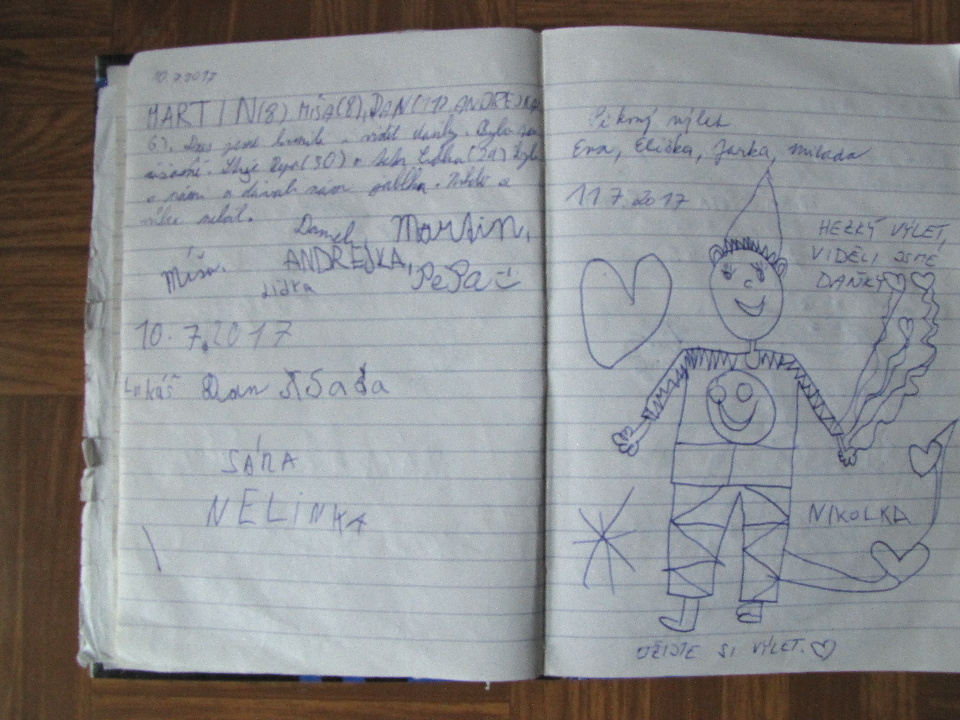 10.7.2017
MARTIN(8) MÍŠA(8), DAN(11), ANDREJKA
6). Dnes jsme krmili a viděli daňky. Bylo to
úžasné. Strejc Pepa(30) a teta Lidka(29) byli
s námi a dávali nám jablka. Nikdo se
nebál.
Daniel, Martin,
Míša. ANDREJKA,
Lidka PePa
10.7.2017
Lukáš Dan
SÁRA
NELINKA
Pěkný výlet
Ema, Eliška, Jarka, Milada
11.7.2017
HEZKÝ VÝLET,
VIDĚLI JSME
DAŇKY
NIKOLKA
UŽIJTE SI VÝLET.